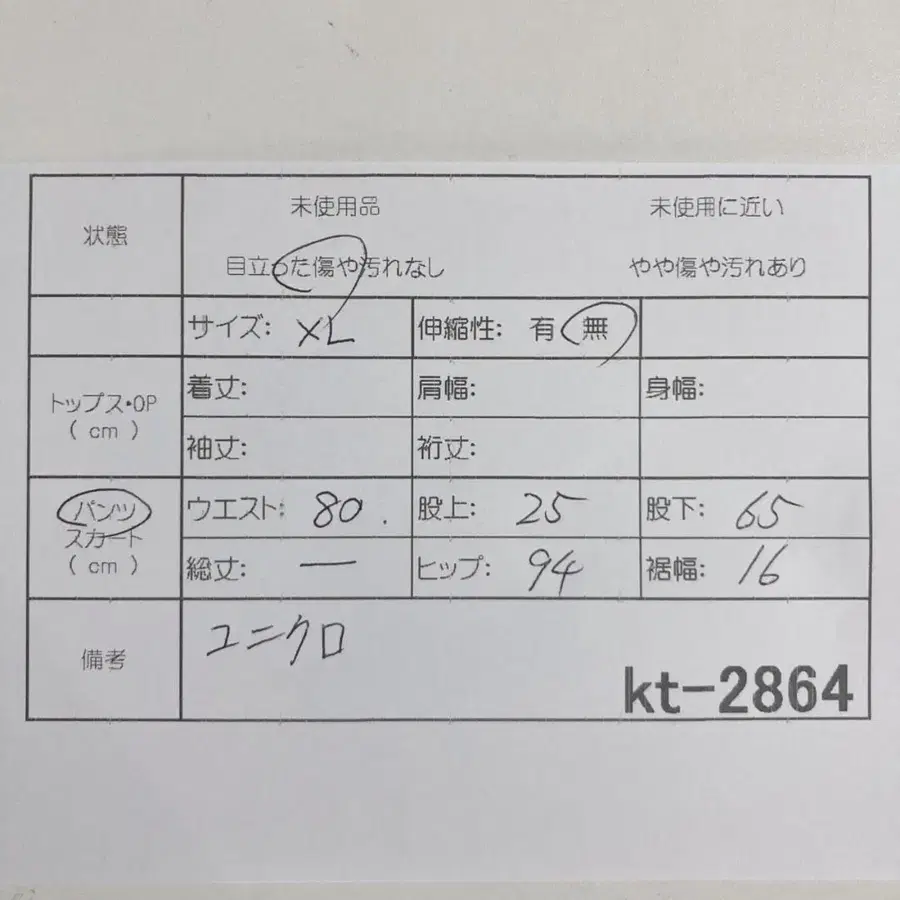 状態
未使用品 未使用に近い
目立った傷や汚れなし やや傷や汚れあり
サイズ: XL 伸縮性: 有 無
トップス・OP
( cm )
着丈: 肩幅: 身幅:
袖丈: 裄丈:
パンツ
スカート
( cm )
ウエスト: 80. 股上: 25 股下: 65
総丈: ー ヒップ: 94 裾幅: 16
備考
ユニクロ
kt-2864